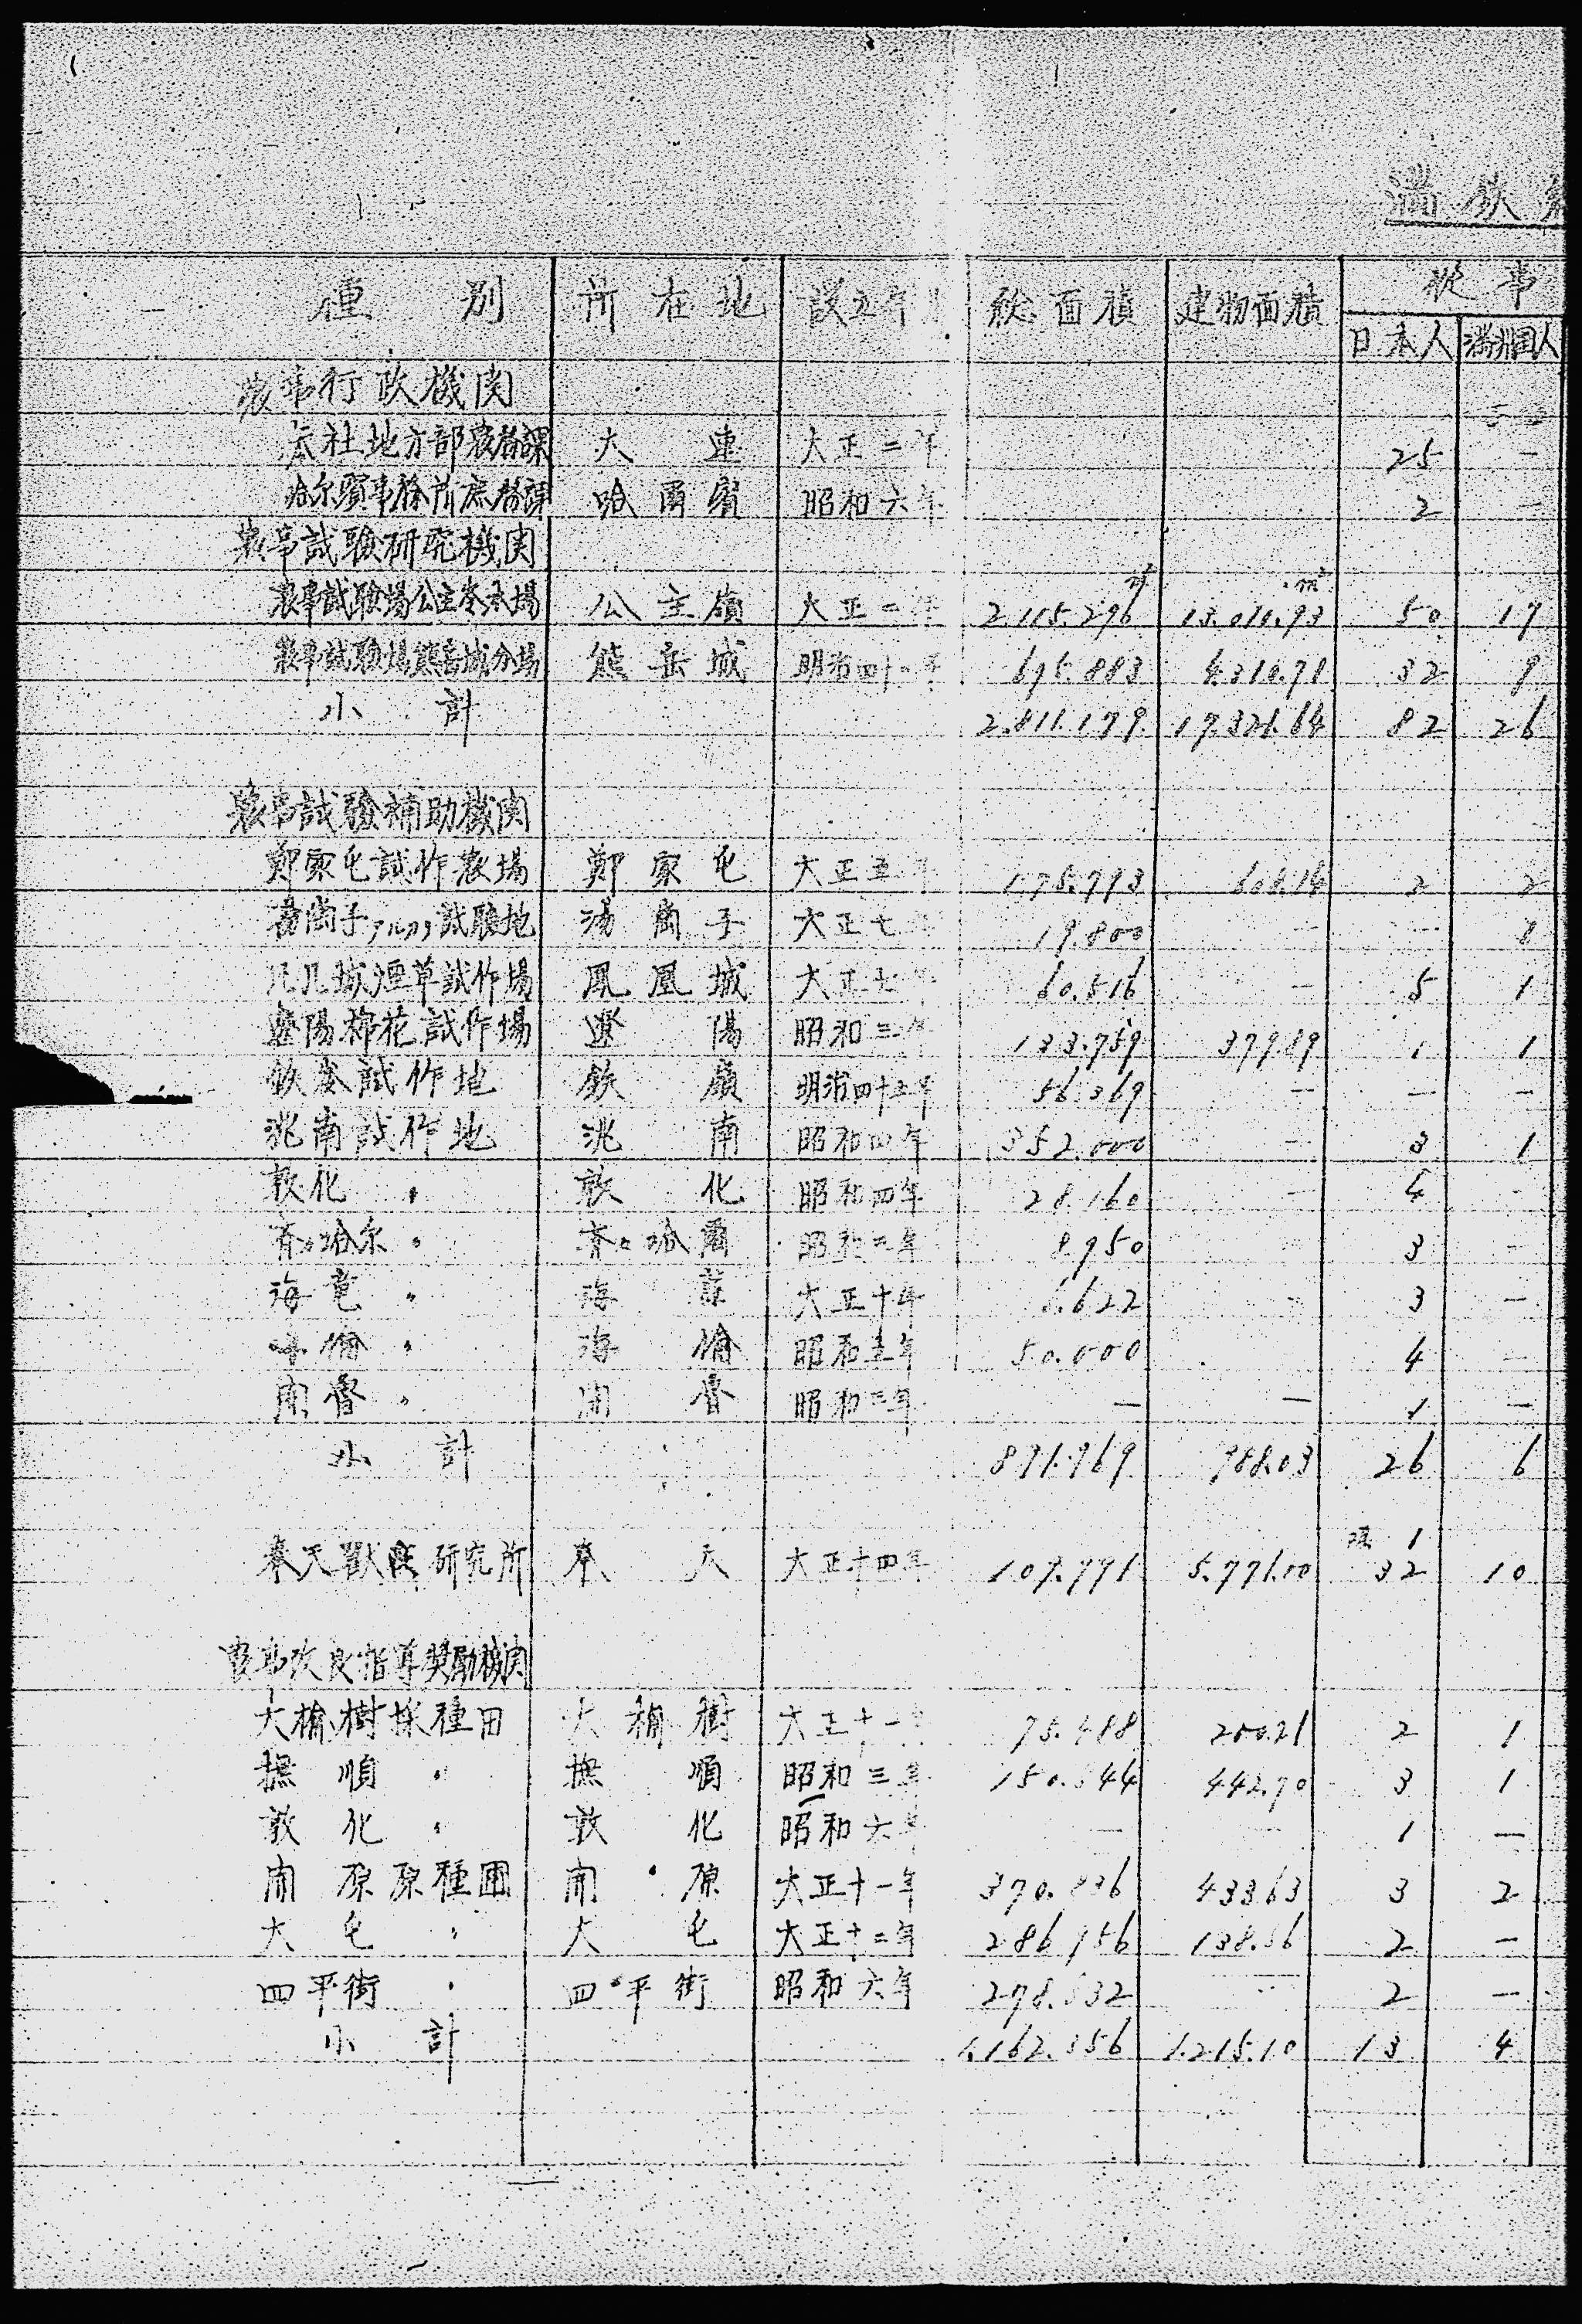 満鉄
種別 所在地 設立年 総面積 建物面積 従事
日本人 満洲国人
農事行政機関
本社地方部農務課 大連 大正二年 25 —
哈尓賓事務所庶務課 哈爾賓 昭和六年 2 —
農事試験研究機関
農事試験場公主岺本場 公主嶺 大正二年 2.115.296㎡ 13.010.93㎡ 50 17
農事試験場熊岳城分場 熊岳城 明治四十二年 695.883 4.310.71 32 9
小計 2.811.179 17.321.64 82 26
農事試験補助機関
鄭家屯試作農場 鄭家屯 大正五年 175.793 608.14 2 2
湯崗子アルカリ試験地 湯崗子 大正七 19.800 —
鳳凰城煙草試作場 鳳凰城 大正七 60.516 — 5 1
遼陽棉花試作場 遼陽 昭和三年 133.759 379.89 1 1
鉄岺試作地 鉄嶺 明治四十三年 56.369 — — —
洮南試作地 洮南 昭和四年 352.000 — 3 1
敦化〃 敦化 昭和四年 28.160 — 4 —
斉々哈尓〃 斉々哈爾 昭和三年 8.950 3 —
海竜〃 海竜 大正十年 6.622 3 —
海倫〃 海倫 昭和五年 50.000 4 —
開魯〃 開魯 昭和三年 — — 1 —
小計 891.969 988.03 26 6
奉天獣疫研究所 奉天 大正十四年 109.991 5.771.00 1 32 10
農事改良指導奨励機関
大楡樹採種田 大楡樹 大正十一 75.488 200.21 2 1
撫順〃 撫順 昭和三年 150.544 442.70 3 1
敦化〃 敦化 昭和六年 — — 1 —
開原原種圃 開原 大正十一年 370.836 433.63 3 2
大屯〃 大屯 大正十二年 286.956 138.56 2 —
四平街〃 四平街 昭和六年 278.532 — 2 —
小計 1.162.356 1.215.10 13 4